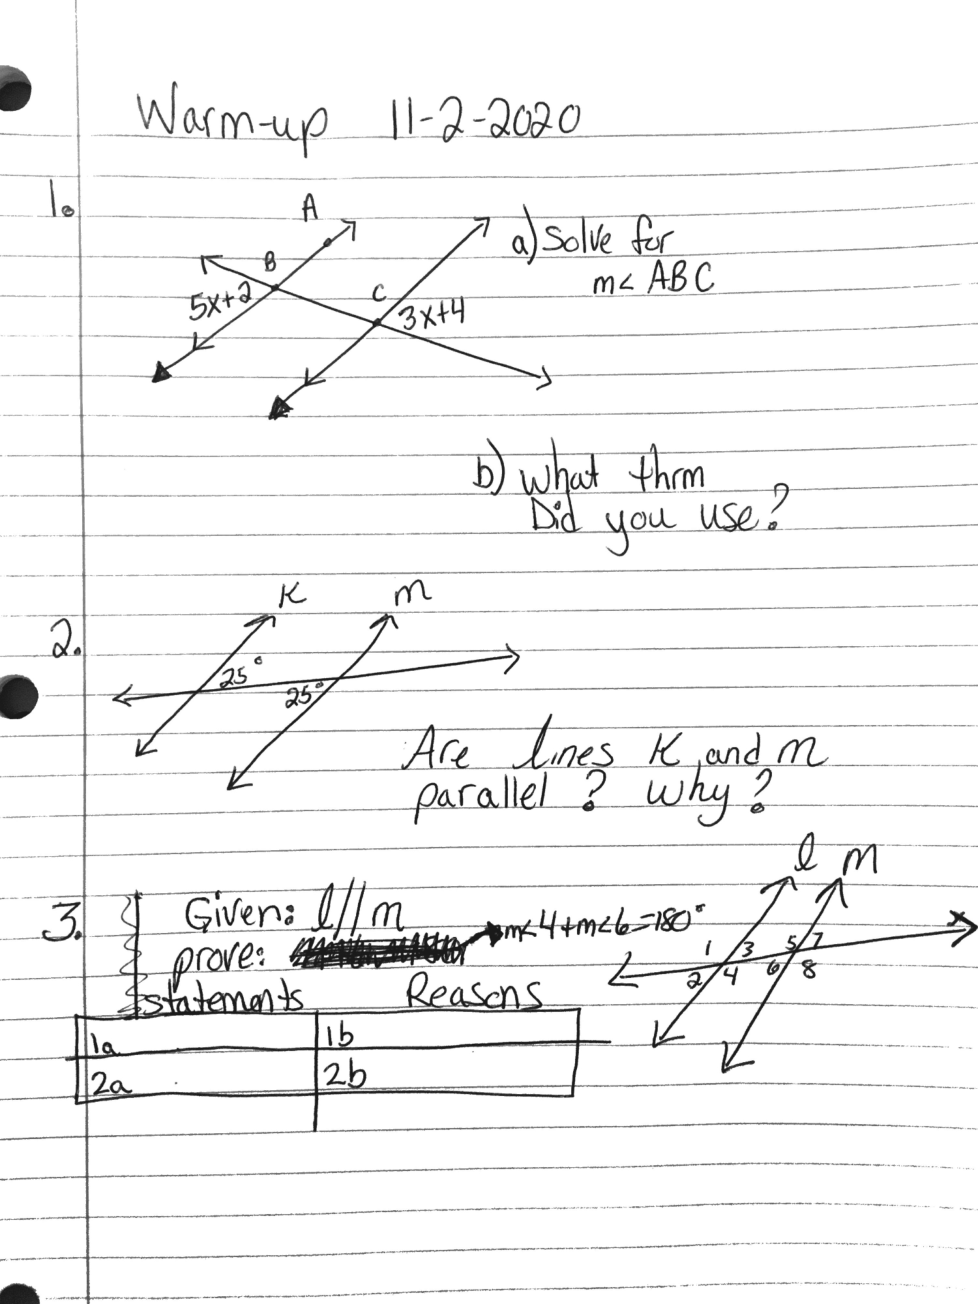 Warm-up 11-2-2020
1.
A
B
C
5x+2
3x+4
a) Solve for
m< ABC
b) What thrm
Did you use?
2.
K m
25°
25°
Are lines K and m
parallel? Why?
l m
3.
Given: l//m
prove: m<4+m<6=180°
1 3 5 7
2 4 6 8
statements Reasons
1a 1b
2a 2b